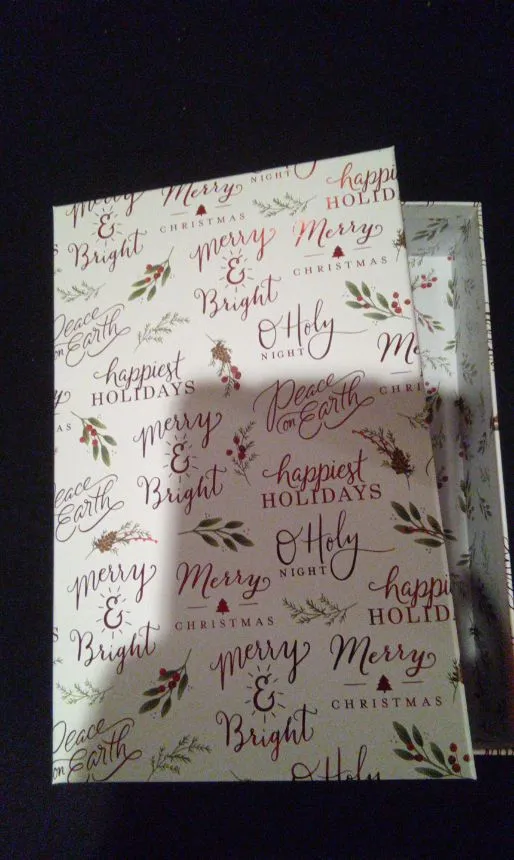 Merry
&
Bright
Merry
CHRISTMAS
NIGHT
happi
HOLID
Merry
&
Bright
Merry
CHRISTMAS
Peace
on Earth
O Holy
NIGHT
Me
CHRI
happiest
HOLIDAYS
Peace
on Earth
Merry
&
Bright
happiest
HOLIDAYS
eace
on Earth
O Holy
NIGHT
Merry
&
Bright
Merry
CHRISTMAS
happi
HOLID
Merry
&
Bright
Merry
CHRISTMAS
Peace
on Earth
O Holy